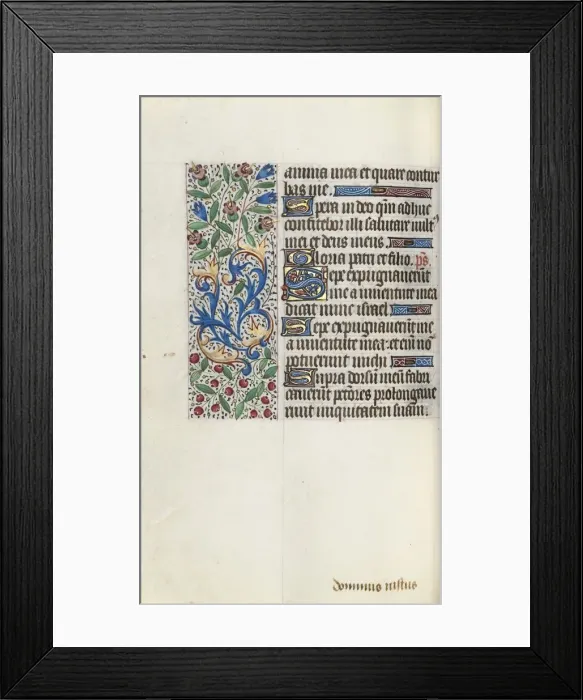 anima mea et quare contur
bas me.
Spera in deo qm̄ adhuc
confitebor illi salutare vult᷒
mei et deus meus.
Gloria patri et filio. ps̄.
Sepe expugnauerūt
me a iuuentute mea
dicat nunc israel
Sepe expugnauerūt me
a iuuentute mea: et em̄ nō
potuerunt michi
Supra dorsū meū fabri
cauerūt pctōres prolongaue
runt iniquitatem suam.
dominus iustus